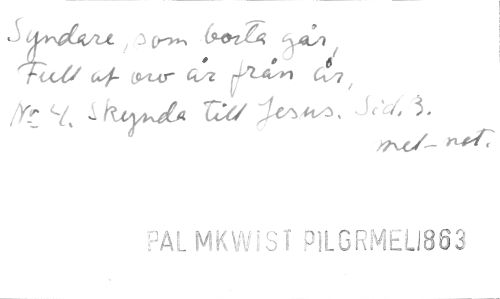 Syndare, som borta går,
Full af oro år från år,
No 4. Skynda till Jesus. Sid. 3.
mel-not.
PALMKWIST PILGRMEL1863